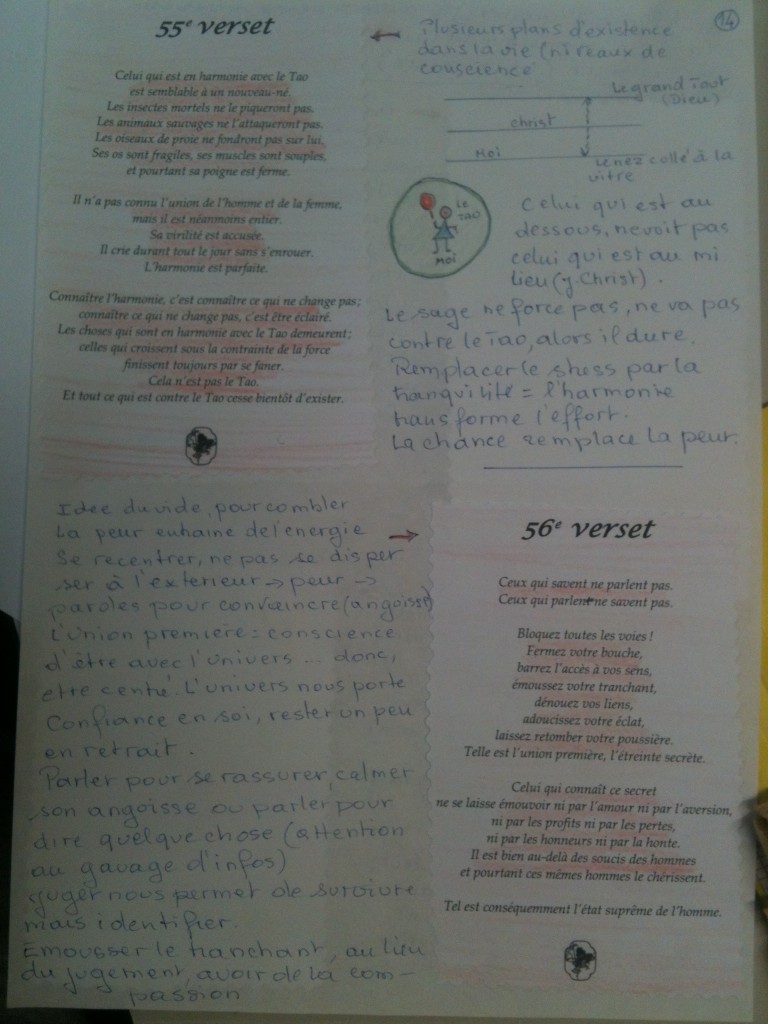 55e verset
Celui qui est en harmonie avec le Tao
est semblable à un nouveau-né.
Les insectes mortels ne le piqueront pas.
Les animaux sauvages ne l'attaqueront pas.
Les oiseaux de proie ne fondront pas sur lui.
Ses os sont fragiles, ses muscles sont souples,
et pourtant sa poigne est ferme.
Il n'a pas connu l'union de l'homme et de la femme,
mais il est néanmoins entier.
Sa virilité est accusée.
Il crie durant tout le jour sans s'enrouer.
L'harmonie est parfaite.
Connaître l'harmonie, c'est connaître ce qui ne change pas;
connaître ce qui ne change pas, c'est être éclairé.
Les choses qui sont en harmonie avec le Tao demeurent;
celles qui croissent sous la contrainte de la force
finissent toujours par se faner.
Cela n'est pas le Tao.
Et tout ce qui est contre le Tao cesse bientôt d'exister.
14
Plusieurs plans d'existence
dans la vie (niveaux de
conscience
Le grand Tout
(Dieu)
christ
Moi
le nez collé à la
vitre
LE
TAO
MOI
Celui qui est au
dessous, ne voit pas
celui qui est au mi
lieu (J. Christ).
Le sage ne force pas, ne va pas
contre le Tao, alors il dure.
Remplacer le stress par la
tranquilité = l'harmonie
transforme l'effort.
La chance remplace la peur.
Idee du vide, pour combler
La peur entraine de l'energie
Se recentrer, ne pas se disper
ser à l'exterieur → peur →
paroles pour convaincre (angoisse)
L'union première = conscience
d'être avec l'univers ... donc,
etre centré. L'univers nous porte
Confiance en soi, rester un peu
en retrait.
Parler pour se rassurer, calmer
son angoisse ou parler pour
dire quelque chose (attention
au gavage d'infos)
juger nous permet de survivre
mais identifier.
Emousser le tranchant, au lieu
du jugement, avoir de la com-
passion
56e verset
Ceux qui savent ne parlent pas.
Ceux qui parlent ne savent pas.
Bloquez toutes les voies !
Fermez votre bouche,
barrez l'accès à vos sens,
émoussez votre tranchant,
dénouez vos liens,
adoucissez votre éclat,
laissez retomber votre poussière.
Telle est l'union première, l'étreinte secrète.
Celui qui connaît ce secret
ne se laisse émouvoir ni par l'amour ni par l'aversion,
ni par les profits ni par les pertes,
ni par les honneurs ni par la honte.
Il est bien au-delà des soucis des hommes
et pourtant ces mêmes hommes le chérissent.
Tel est conséquemment l'état suprême de l'homme.